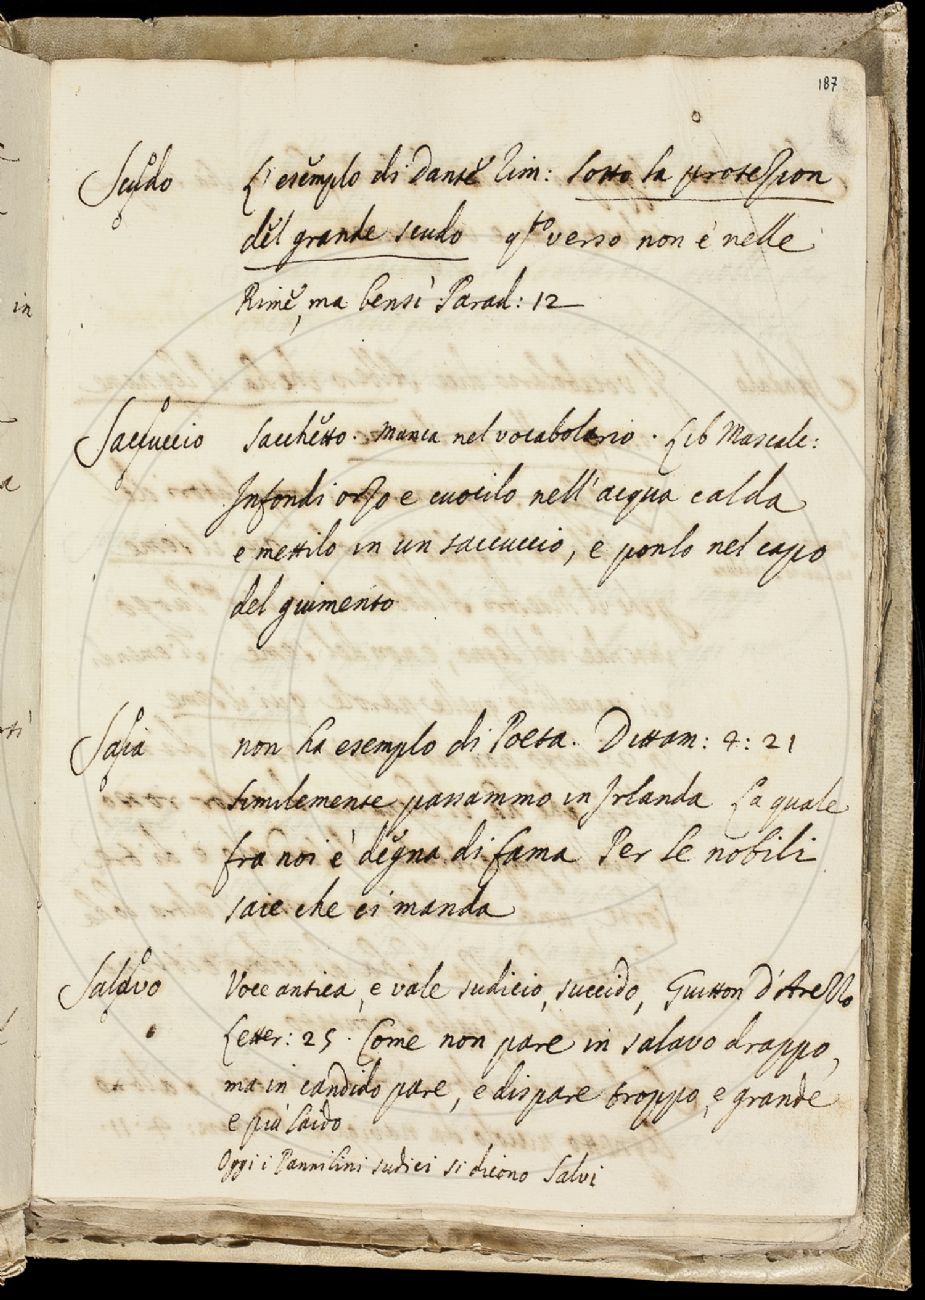 187
Scudo L'esemplo di Dante Rim: sotto la protezion
del grande scudo q.to verso non è nelle
Rime, ma bensì Parad: 12
Saccuccio Sacchetto. Manca nel vocabolario. Lib Mascalc:
Infondi orzo e cuocilo nell'acqua calda
e mettilo in un saccuccio, e ponlo nel capo
del giumento
Saia non ha esemplo di Poeta. Dittam: 4: 21
Similemente passammo in Irlanda La quale
fra noi è degna di fama Per le nobili
saie che ci manda
Salavo Voce antica, e vale sudicio, succido, Guitton d'Arezzo
Letter: 25. Come non pare in salavo drappo,
ma in candido pare, e dispare troppo, e grande
e più laido
Oggi i Pannilini sudici si dicono Salvi
in
a